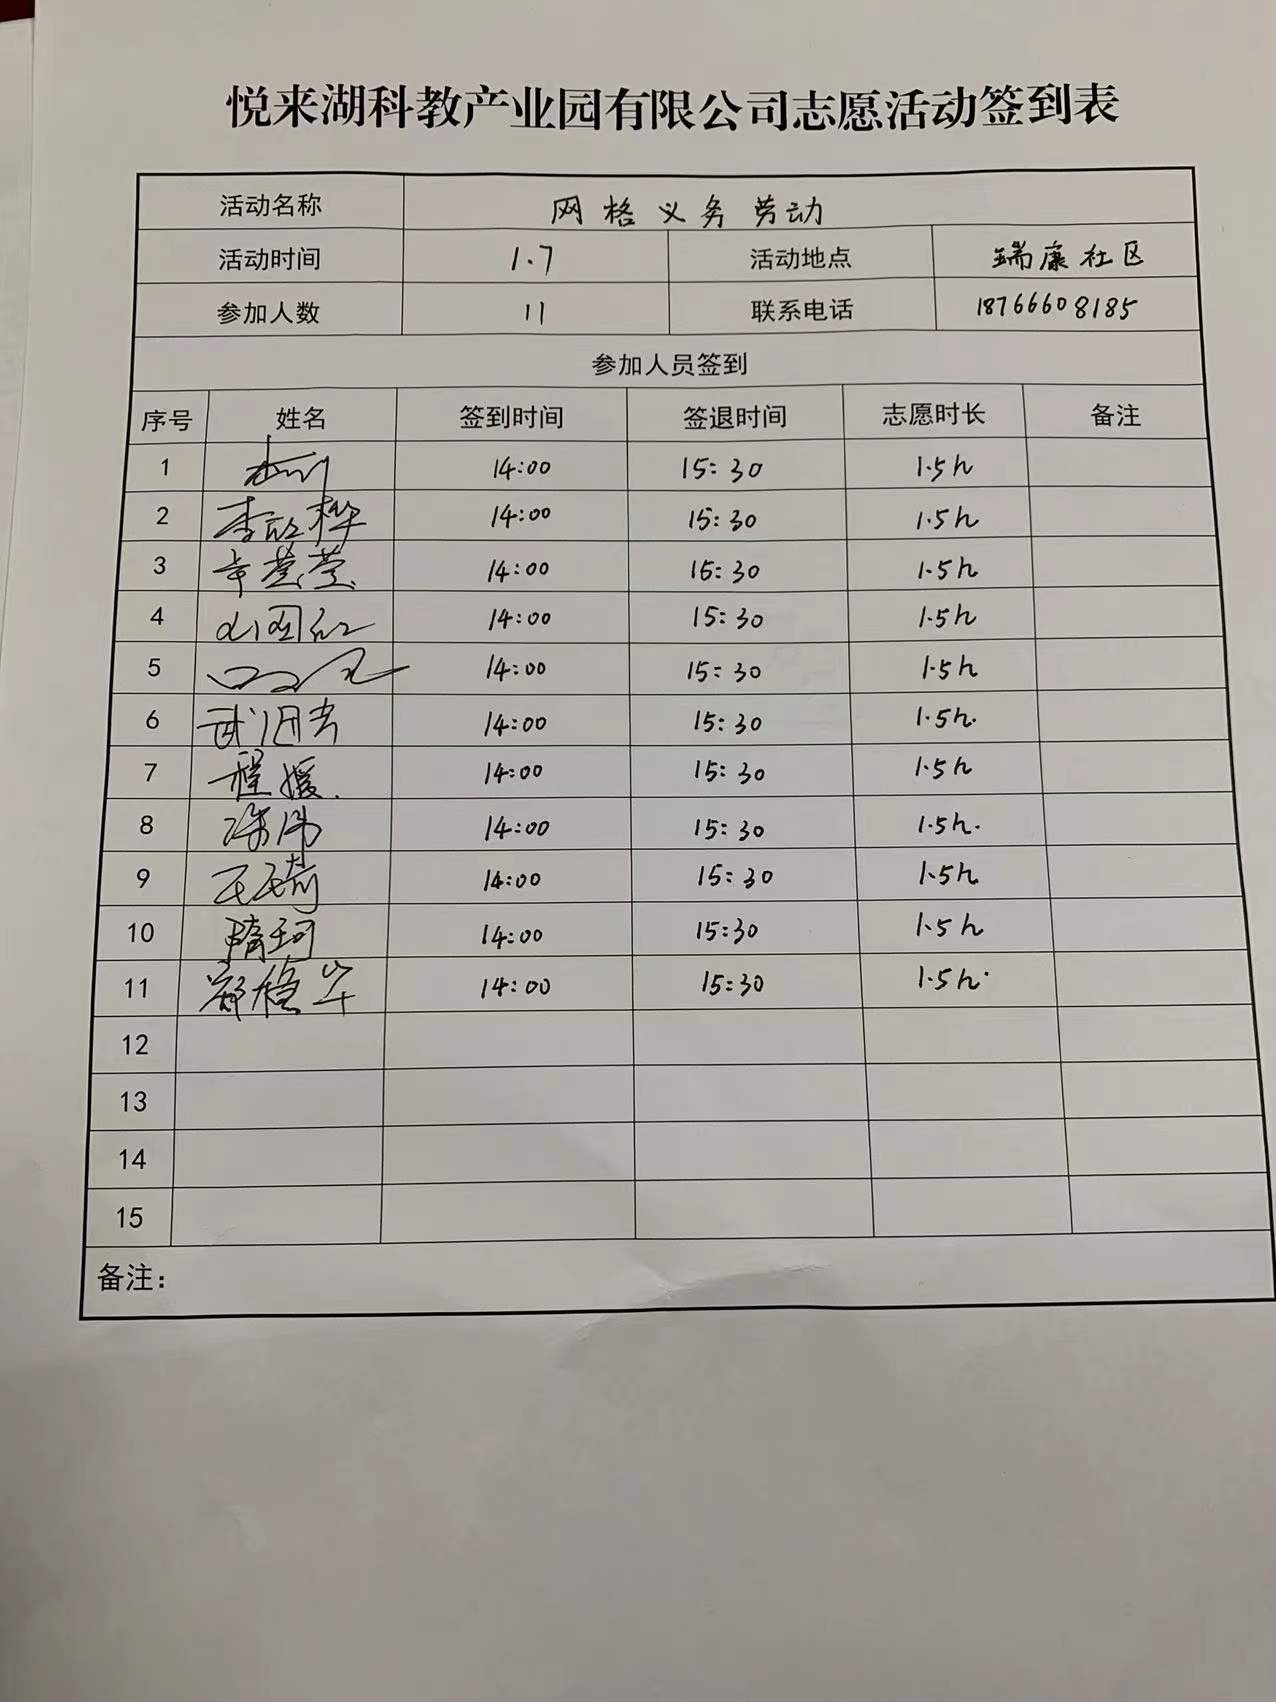 悦来湖科教产业园有限公司志愿活动签到表
活动名称 网格义务劳动
活动时间 1.7 活动地点 瑞康社区
参加人数 11 联系电话 18766608185
参加人员签到
序号 姓名 签到时间 签退时间 志愿时长 备注
1 14:00 15:30 1.5h
2 李欣桦 14:00 15:30 1.5h
3 辛莹莹 14:00 15:30 1.5h
4 14:00 15:30 1.5h
5 14:00 15:30 1.5h
6 14:00 15:30 1.5h.
7 程媛. 14:00 15:30 1.5h
8 14:00 15:30 1.5h.
9 王琦 14:00 15:30 1.5h
10 隋珂 14:00 15:30 1.5h
11 14:00 15:30 1.5h.
12
13
14
15
备注：